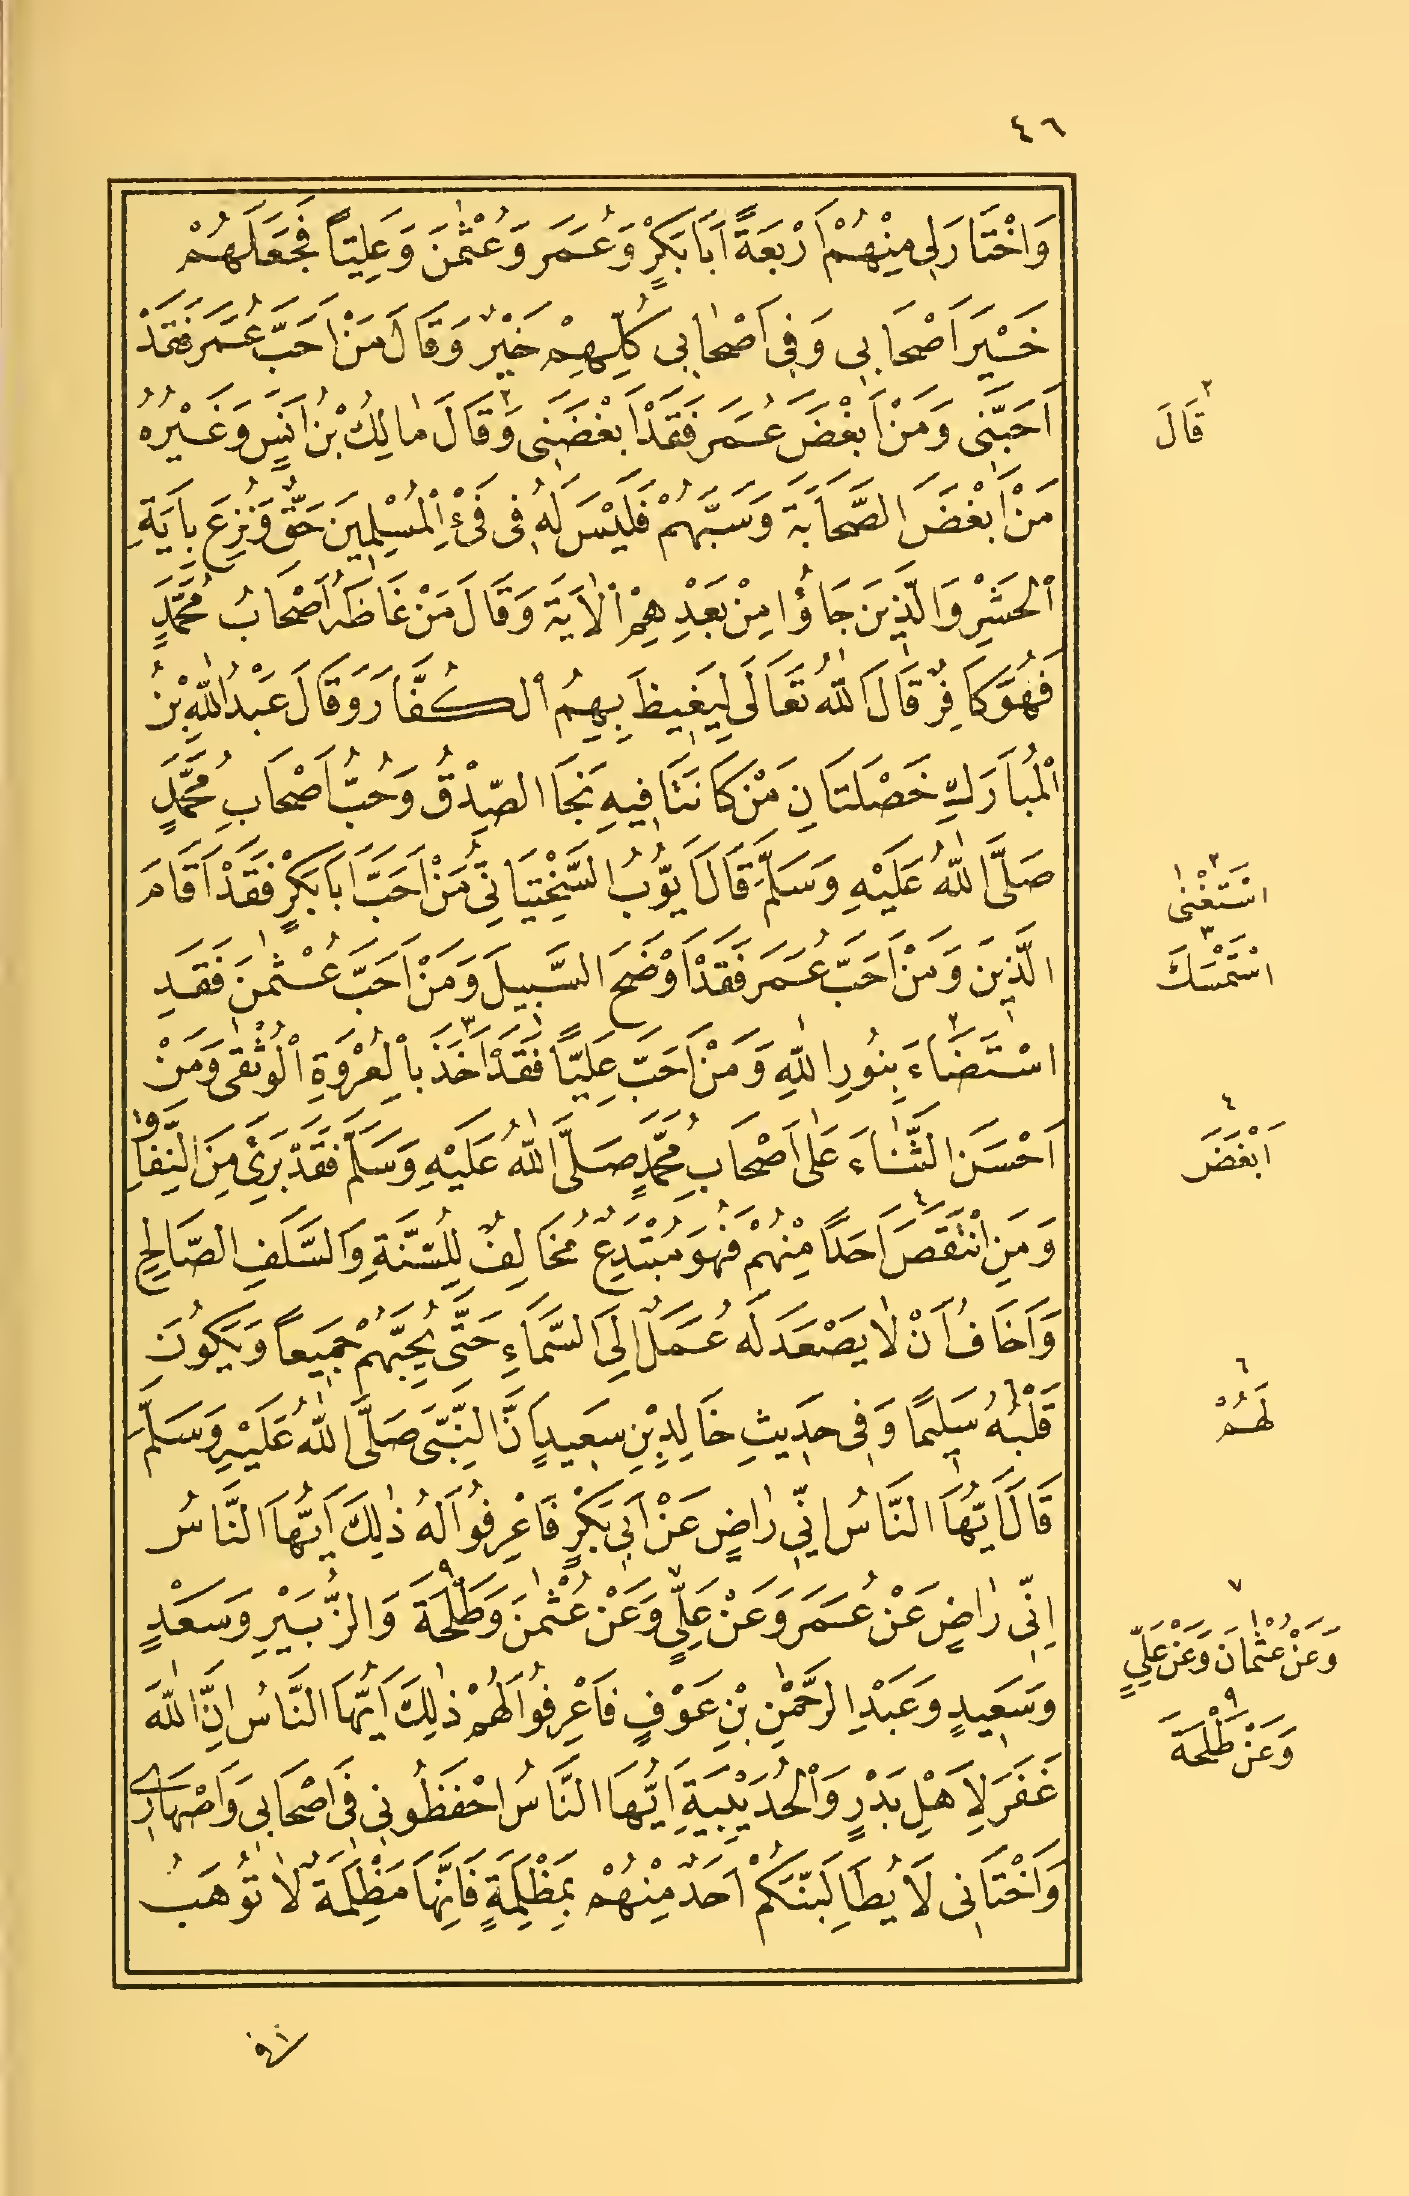 ٤٦
وَاخْتَارَ لِي مِنْهُمْ اَرْبَعَةً اَبَا بَكْرٍ وَعُمَرَ وَعُثْمٰنَ وَعَلِيًّا فَجَعَلَهُمْ
خَيْرَ اَصْحَابِي وَفِي اَصْحَابِي كُلِّهِمْ خَيْرٌ وَقَالَ مَنْ اَحَبَّ عُمَرَ فَقَدْ
اَحَبَّنِي وَمَنْ اَبْغَضَ عُمَرَ فَقَدْ اَبْغَضَنِي ٢ وَقَالَ مَالِكُ بْنُ اَنَسٍ وَغَيْرُهُ
مَنْ اَبْغَضَ الصَّحَابَةَ وَسَبَّهُمْ فَلَيْسَ لَهُ فِي فَيْءِ الْمُسْلِمِينَ حَقٌّ وَنُزِعَ بِاٰيَةِ
الْحَشْرِ وَالَّذِينَ جَاؤُا مِنْ بَعْدِهِمْ الْاٰيَةَ وَقَالَ مَنْ غَاظَهُ اَصْحَابُ مُحَمَّدٍ
فَهُوَ كَافِرٌ قَالَ اللّٰهُ تَعَالَى لِيَغِيظَ بِهِمُ الْكُفَّارَ وَقَالَ عَبْدُ اللّٰهِ بْنُ
الْمُبَارَكِ خَصْلَتَانِ مَنْ كَانَتَا فِيهِ نَجَا الصِّدْقُ وَحُبُّ اَصْحَابِ مُحَمَّدٍ
صَلَّى اللّٰهُ عَلَيْهِ وَسَلَّمَ قَالَ اَيُّوبُ السَّخْتِيَانِيُّ مَنْ اَحَبَّ اَبَا بَكْرٍ فَقَدْ اَقَامَ
الدِّينَ وَمَنْ اَحَبَّ عُمَرَ فَقَدْ اَوْضَحَ السَّبِيلَ وَمَنْ اَحَبَّ عُثْمٰنَ فَقَدِ
اسْتَضَاءَ ٢ بِنُورِ اللّٰهِ وَمَنْ اَحَبَّ عَلِيًّا فَقَدْ اَخَذَ ٣ بِالْعُرْوَةِ الْوُثْقٰى وَمَنْ
اَحْسَنَ الثَّنَاءَ عَلٰى اَصْحَابِ مُحَمَّدٍ صَلَّى اللّٰهُ عَلَيْهِ وَسَلَّمَ فَقَدْ بَرِئَ مِنَ النِّفَاقِ
وَمَنِ انْتَقَصَ ٤ اَحَدًا مِنْهُمْ فَهُوَ مُبْتَدِعٌ مُخَالِفٌ لِلسُّنَّةِ وَالسَّلَفِ الصَّالِحِ
وَاَخَافُ اَنْ لَا يَصْعَدَ لَهُ عَمَلٌ اِلَى السَّمَاءِ حَتَّى يُحِبَّهُمْ جَمِيعًا وَيَكُونَ
قَلْبُهُ ٦ سَلِيمًا وَفِي حَدِيثِ خَالِدِ بْنِ سَعِيدٍ اَنَّ النَّبِيَّ صَلَّى اللّٰهُ عَلَيْهِ وَسَلَّمَ
قَالَ اَيُّهَا النَّاسُ اِنِّي رَاضٍ عَنْ اَبِي بَكْرٍ فَاعْرِفُوا لَهُ ذٰلِكَ اَيُّهَا النَّاسُ
اِنِّي رَاضٍ عَنْ عُمَرَ وَعَنْ عَلِيٍّ ٧ وَعَنْ عُثْمٰنَ وَطَلْحَةَ ٩ وَالزُّبَيْرِ وَسَعْدٍ
وَسَعِيدٍ وَعَبْدِ الرَّحْمٰنِ بْنِ عَوْفٍ فَاعْرِفُوا لَهُمْ ذٰلِكَ اَيُّهَا النَّاسُ اِنَّ اللّٰهَ
غَفَرَ لِاَهْلِ بَدْرٍ وَالْحُدَيْبِيَةِ اَيُّهَا النَّاسُ احْفَظُونِي فِي اَصْحَابِي وَاَصْهَارِي
وَاَخْتَانِي لَا يُطَالِبَنَّكُمْ اَحَدٌ مِنْهُمْ بِمَظْلِمَةٍ فَاِنَّهَا مَظْلِمَةٌ لَا تُوهَبُ
٢ قَالَ
٢ اسْتَغْنٰى
٣ اسْتَمْسَكَ
٤ اَبْغَضَ
٦ لَهُمْ
٧ وَعَنْ عُثْمَانَ وَعَنْ عَلِيٍّ
٩ وَعَنْ طَلْحَةَ